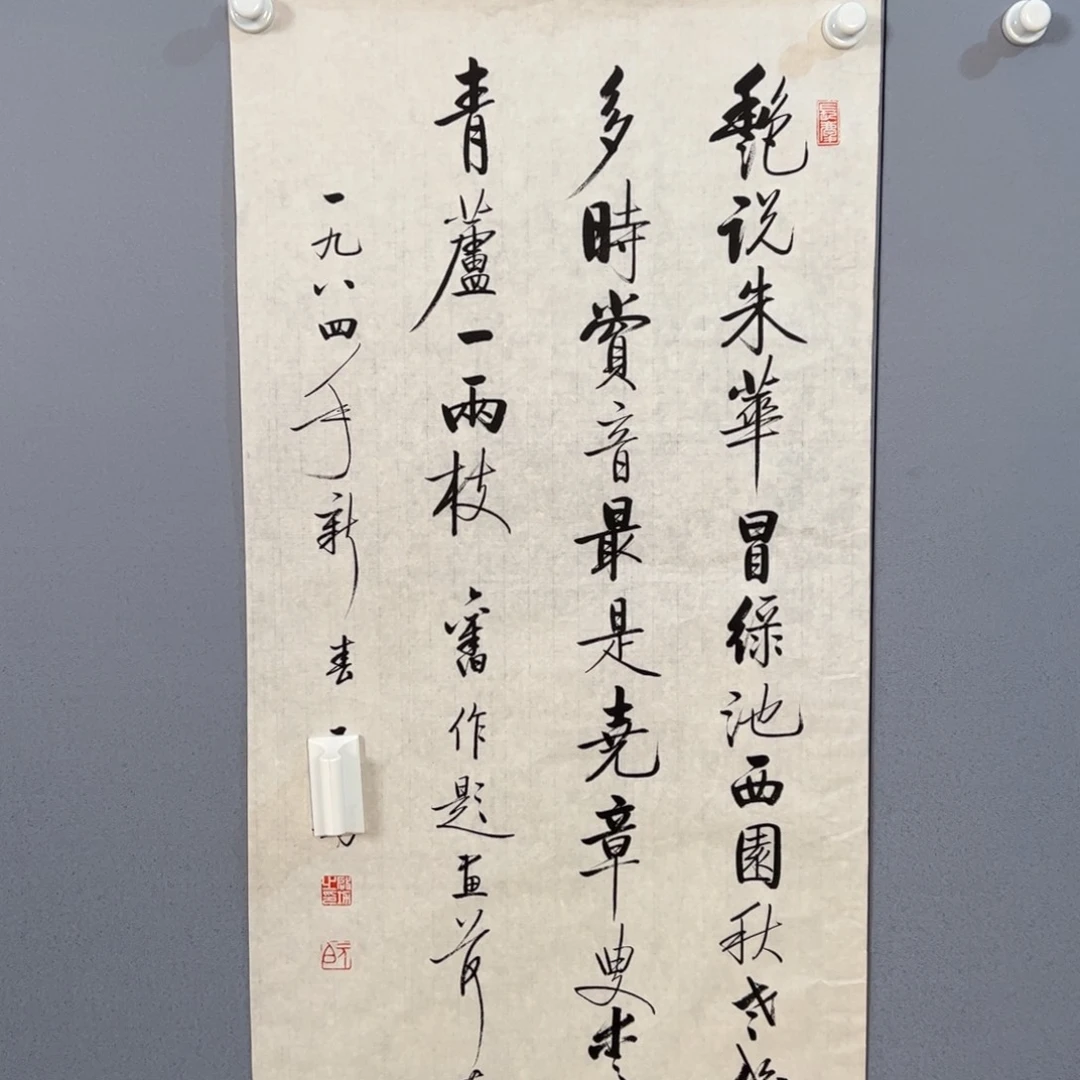 艷说朱華冒緑池西園秋老
多時賞音最是堯章叟
青蘆一兩枝 舊作題畫荷
一九八四年新春